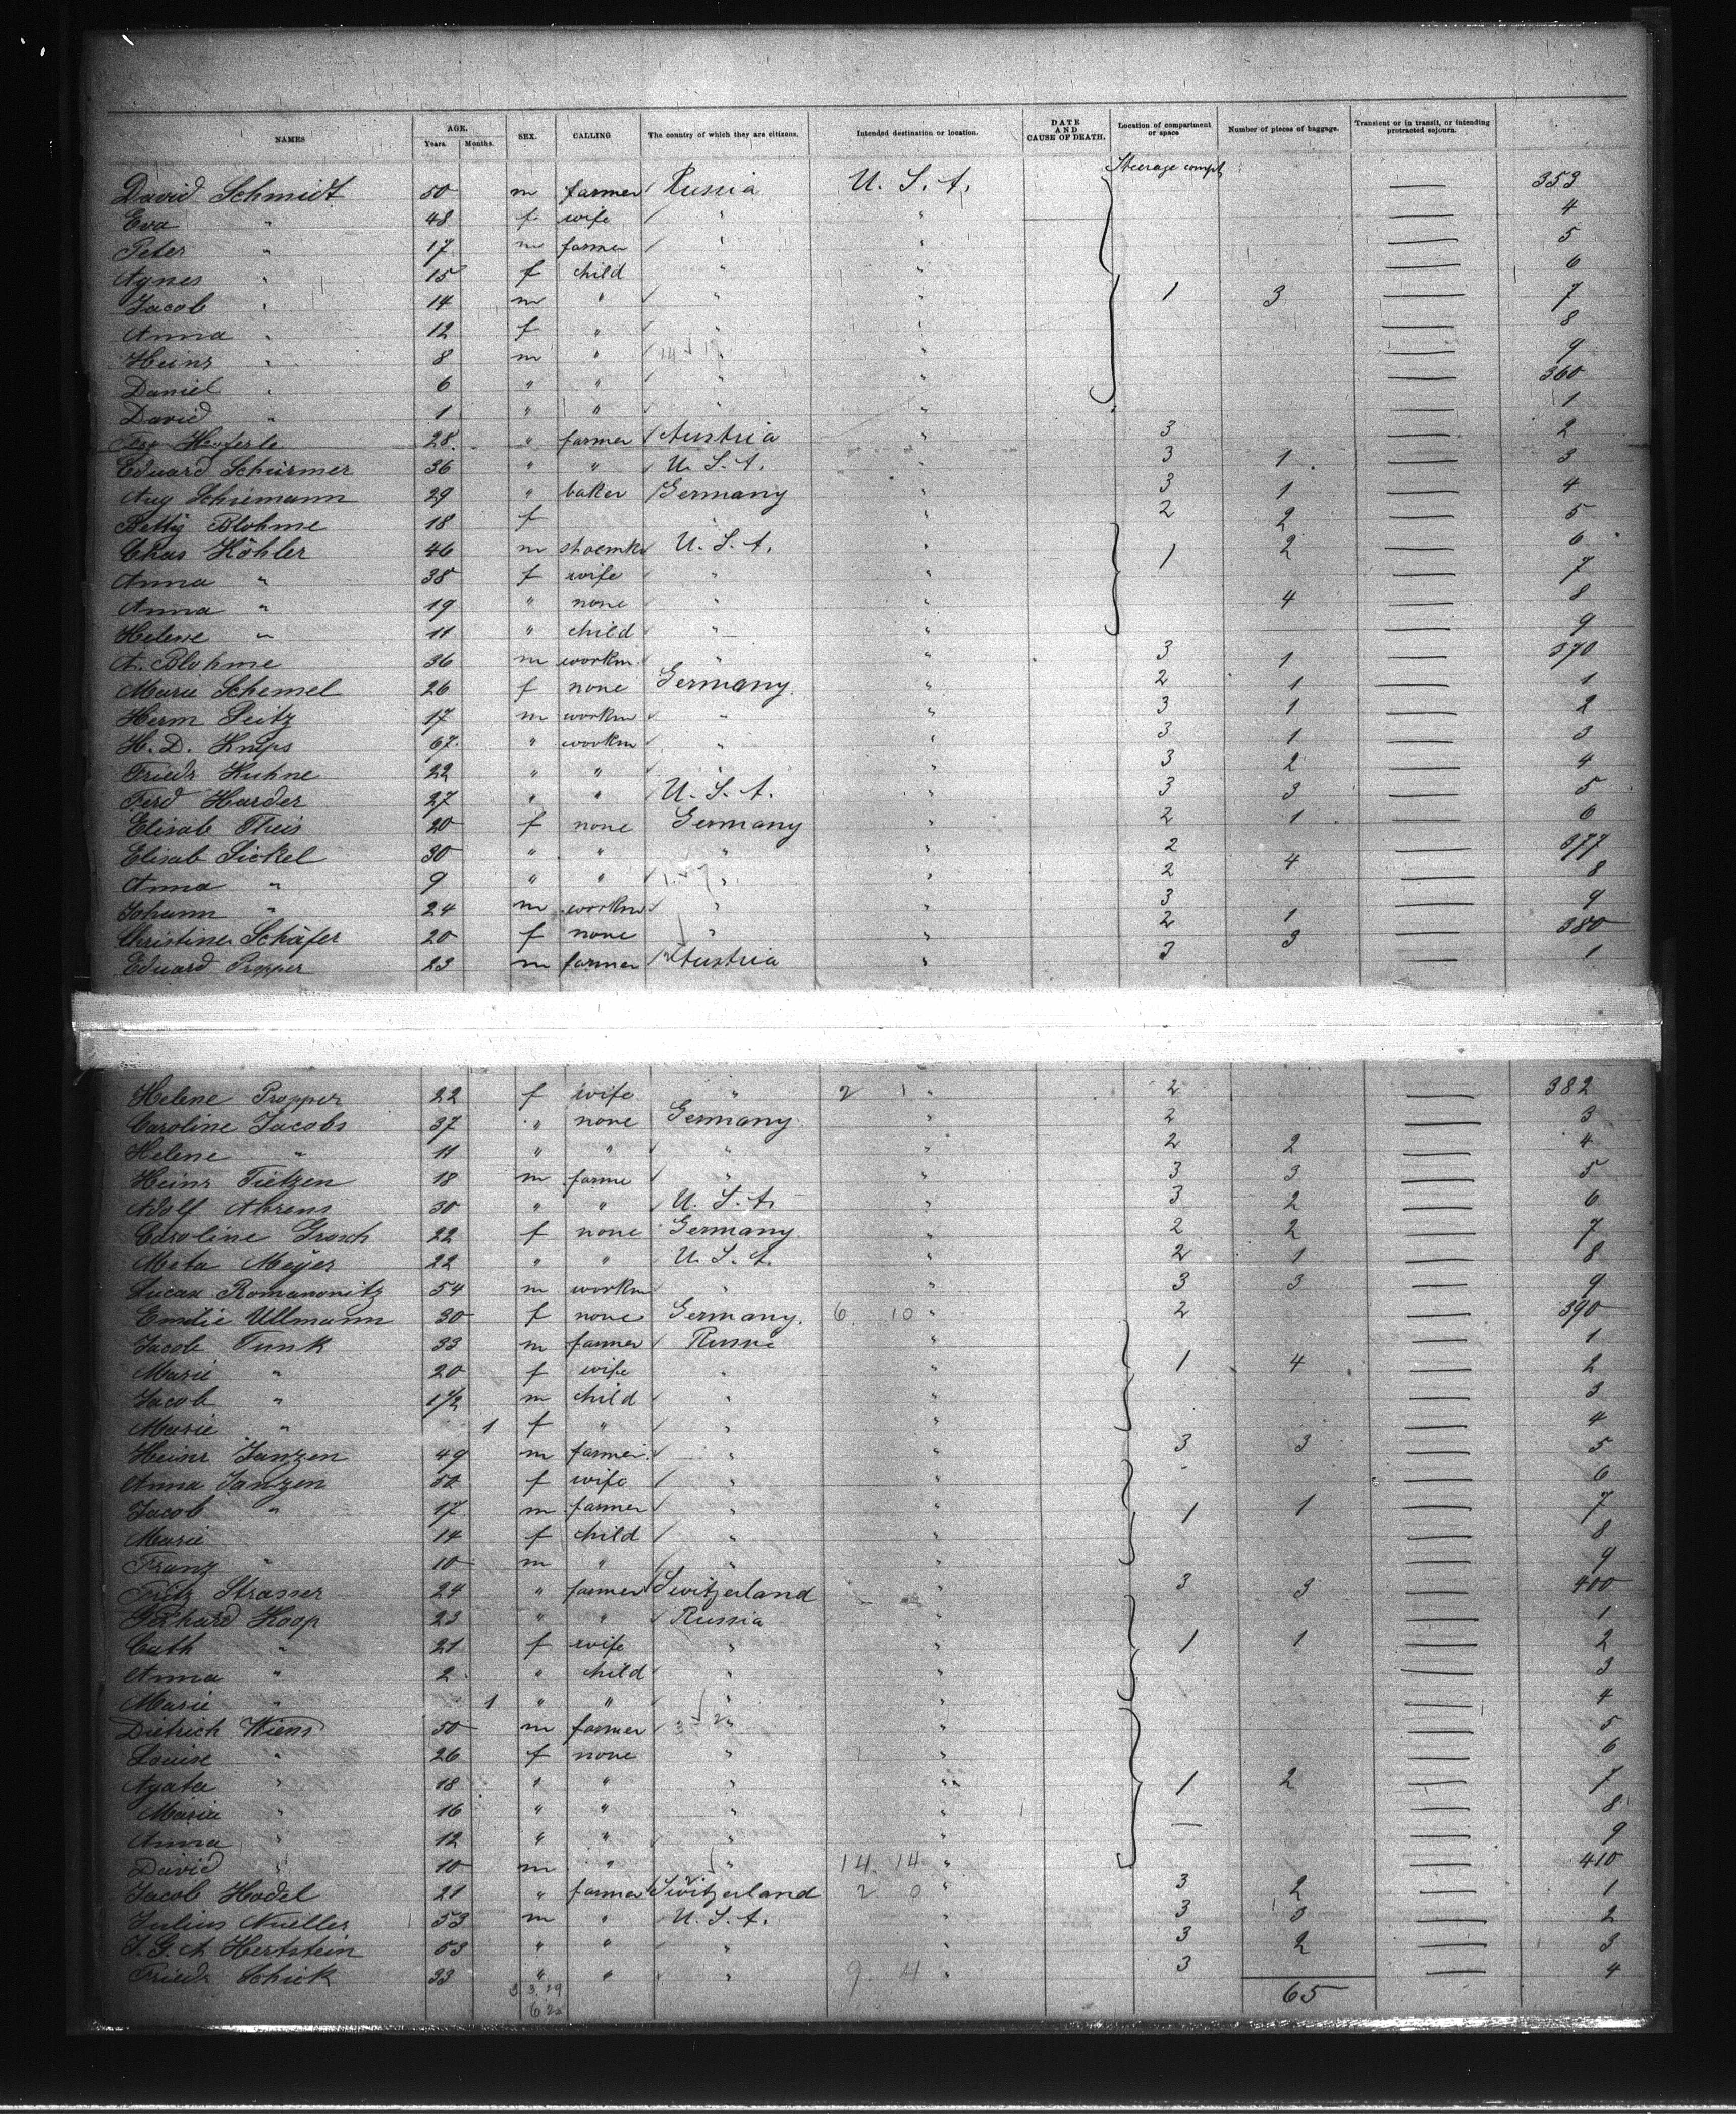 NAMES AGE. Years. Months. SEX. CALLING The country of which they are citizens. Intended destination or location. DATE AND CAUSE OF DEATH. Location of compartment or space Number of pieces of baggage. Transient or in transit, or intending protracted sojourn.
Steerage compt
David Schmidt 50 m farmer Russia U. S. A. — 353
Eva " 48 f wife " " — 4
Peter " 17 m farmer " " — 5
Agnes " 15 f child " " — 6
Jacob " 14 m " " " 1 3 — 7
Anna " 12 f " " " — 8
Heinr " 8 m " " " — 9
Daniel " 6 " " " " — 360
David " 1 " " " " — 1
Heyferle 28 " farmer Austria " 3 — 2
Eduard Schürmer 36 " " U. S. A. " 3 1 — 3
Aug Schiemann 29 " baker Germany " 3 1 — 4
Betty Blohme 18 f " 2 2 — 5
Chas Köhler 46 m shoemk U. S. A. " 1 2 — 6
Anna " 38 f wife " " — 7
Anna " 19 " none " " 4 — 8
Helene " 11 " child " " — 9
A. Blohme 36 m workm " " 3 1 — 370
Marie Schemel 26 f none Germany. " 2 1 — 1
Herm Peitz 17 m workm " " 3 1 — 2
H. D. Knips 67 " workm " " 3 1 — 3
Friedr Kuhne 22 " " " " 3 2 — 4
Ferd Harder 27 " " U. S. A. " 3 3 — 5
Elisab Theis 20 f none Germany " 2 1 — 6
Elisab Sickel 30 " " " " 2 — 377
Anna " 9 " " " " 2 4 — 8
Johann " 24 m workm " " 3 — 9
Christine Schäfer 20 f none " " 2 1 — 380
Eduard Propper 23 m farmer Austria " 3 3 — 1
Helene Propper 22 f wife " 2 1 " 2 — 382
Caroline Jacobs 37 " none Germany " 2 — 3
Helene " 11 " " " " 2 2 — 4
Heinr Tietzen 18 m farme " " 3 3 — 5
Adolf Ahrens 30 " " U. S. A. " 3 2 — 6
Caroline Grosch 22 f none Germany " 2 2 — 7
Meta Meÿer 22 " " U. S. A. " 2 1 — 8
Lucas Romanowitz 54 m workm " " 3 3 — 9
Emilie Ullmann 30 f none Germany. 6 10 " 2 — 390
Jacob Funk 33 m farmer Russie " — 1
Marie " 20 f wife " " 1 4 — 2
Jacob " 1½ m child " " — 3
Marie " 1 f " " " — 4
Heinr Janzen 49 m farmer " " 3 3 — 5
Anna Janzen 52 f wife " " — 6
Jacob " 17 m farmer " " 1 1 — 7
Marie 14 f child " " — 8
Franz " 10 m " " " — 9
Fritz Strasser 24 " farmer Switzerland " 3 3 — 400
Gerhard Koop 23 " " Russia " — 1
Cath " 21 f wife " " 1 1 — 2
Anna " 2 " child " " — 3
Marie " 1 " " " " — 4
Dietrich Wiens 50 m farmer 3 2 " " — 5
Louise " 26 f none " " — 6
Agata " 18 " " " " 1 2 — 7
Maria " 16 " " " " — 8
Anna " 12 " " " " — — 9
David " 10 m " " 14 14 " — 410
Jacob Hodel 21 " farmer Switzerland 2 0 " 3 2 — 1
Julius Mueller 53 m " U. S. A. " 3 3 — 2
J. G. A Hertstein 53 " " " " 3 2 — 3
Friedr Schick 33 " " " 9 4 " 3 — 4
3 3 19 65
6 20